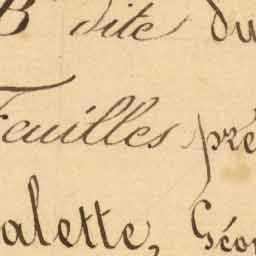 B dite du
Feuilles pré
alette, Géo